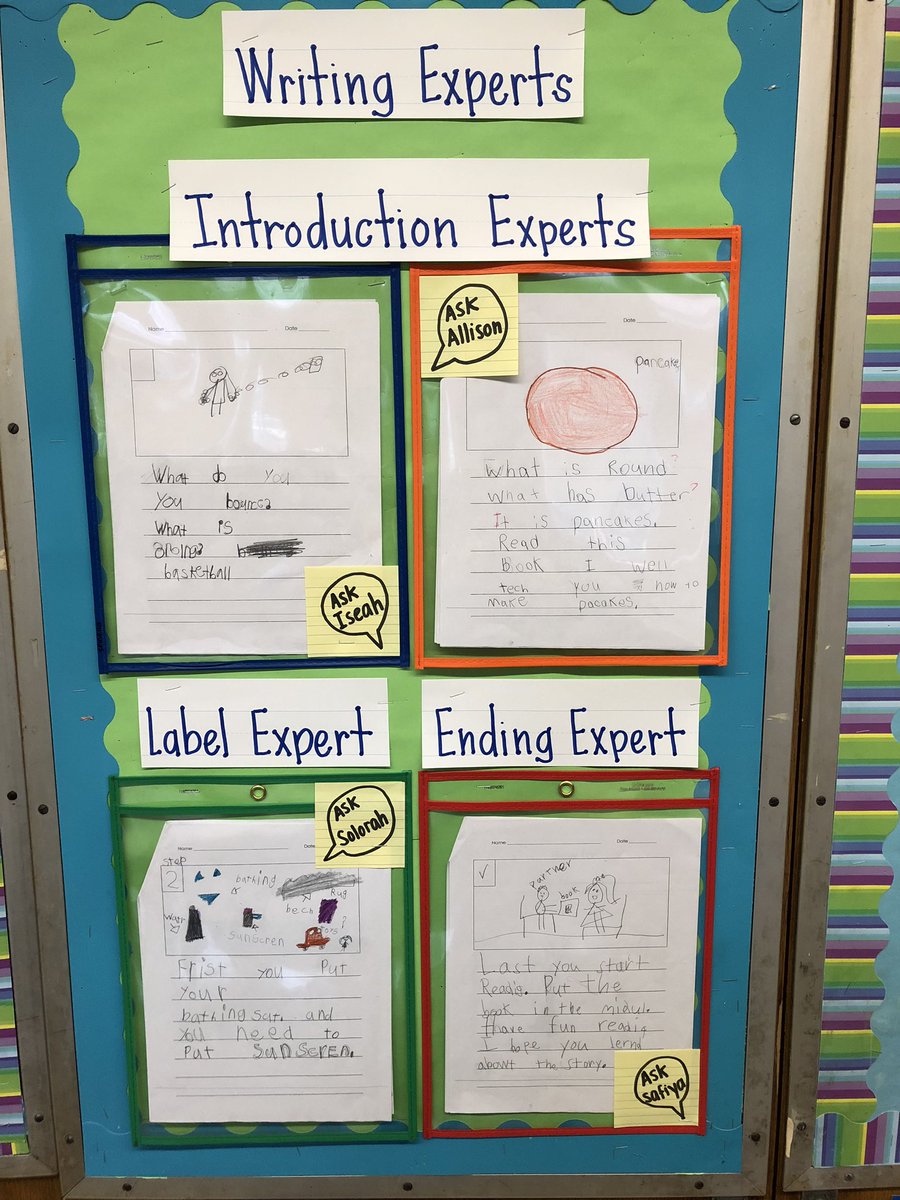 Writing Experts
Introduction Experts
Name Date
What do you
you bounce?
What is
oringe?
basketball
Ask
Iseah
Ask
Allison
Date
pancake
What is Round?
What has butter?
It is pancakes.
Read this
Book I well
tech you how to
make pacakes.
Label Expert
Ask
Solorah
Name
step
2
bathing
Rug
bech
Watr
sunscreen
toys
Frist you Put
your
bathing sut. and
you need to
Put sunscren.
Ending Expert
Name Date
Partner
me
book
Last you start
Readig. Put the
book in the midul.
have fun readig
I hope you lernd
about the story.
Ask
safiya